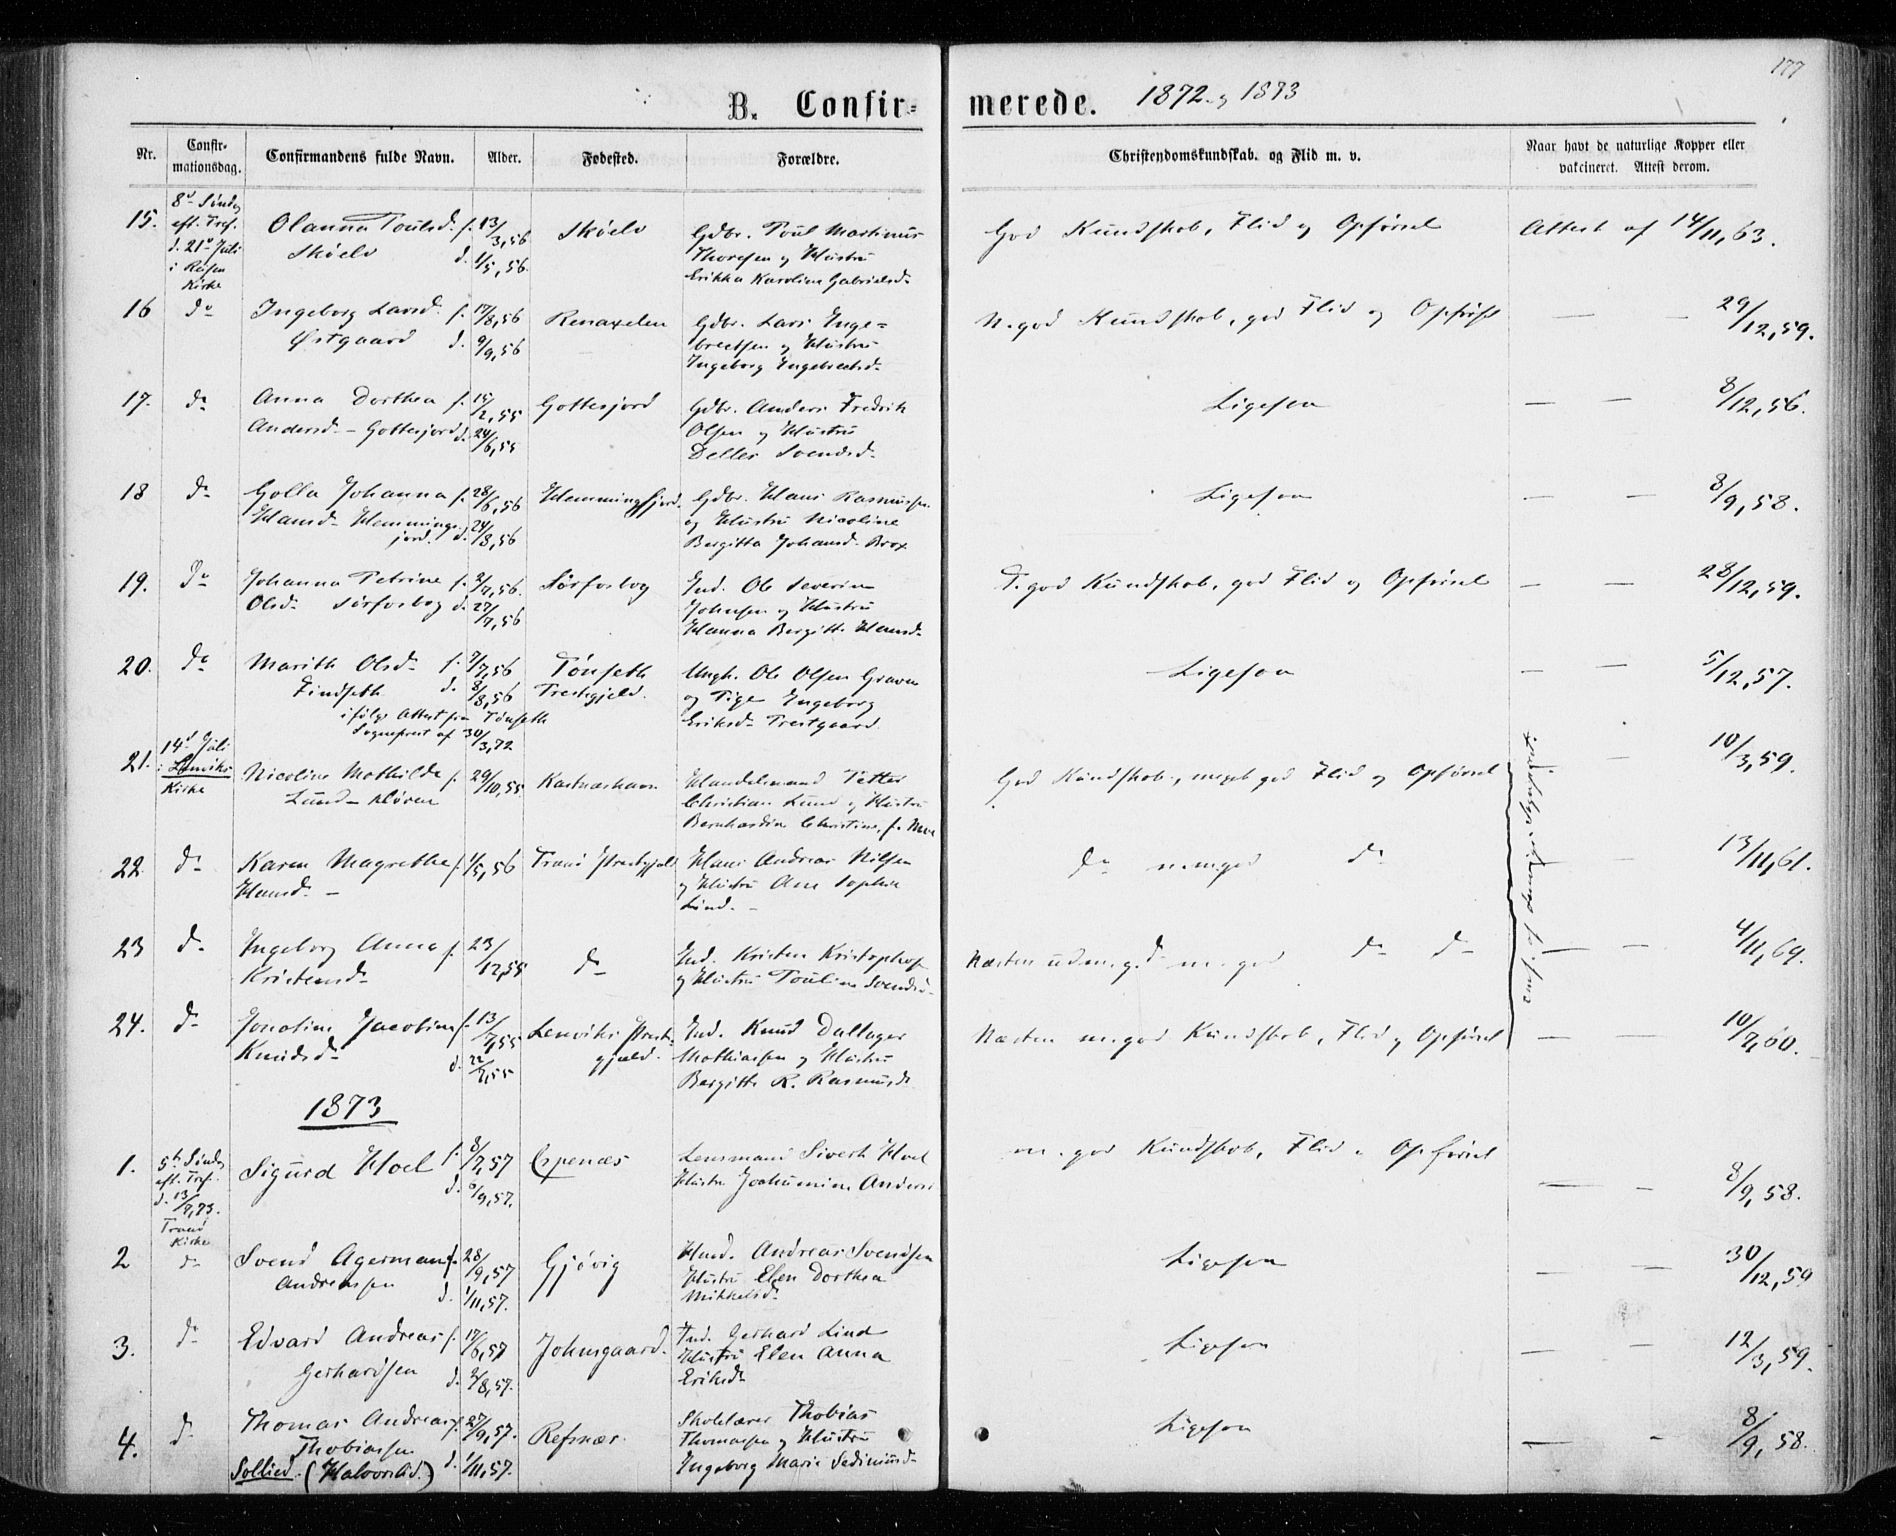 177
B. Confir-
merede. 1872 og 1873
Nr.
Confir-
mationsdag.
Confirmandens fulde Navn.
Alder.
Fødested.
Forældre.
Christendomskundskab. og Flid m. v.
Naar havt de naturlige Kopper eller
vakcineret. Attest derom.
15.
8d Søndag
eft. Tref.
d. 21d Juli
i Reisen
Kirke
Olanna Poulsd.
Sköelv
f. 13/3,56
d. 1/5,56.
Sköelv
Gdbr. Poul Martinus
Thoresen og Hustru
Erikka Karoline Gabrielsd.
God Kundskab, Flid og Opförsel
Attest af 14/11,63.
16
do
Ingeborg Larsd.
Østgaard
f. 17/8,56
d. 9/9,56
Gdbr. Lars Inge=
bretsen og Hustru
Ingeborg Engebretsd.
N. god Kundskab, god Flid og Opförsel
— — 29/12,59.
17.
do
Anna Dorthea
Andersd. Gottesjord
f. 15/2,55
d. 24/6,55
Gottesjord
Gdbr. Anders Fredrik
Olsen og Hustru
Svendsd.
Ligesaa
— — 8/12,56.
18
do
Golla Johanna
Hansd. Hemmings-
jord.
f. 28/6,56
d. 24/8,56
Hemmingsjord.
Gdbr. Hans Rasmussen
og Hustru Nicoline
Bergitta Johansd. Brox
Ligesaa
— — 8/9,58.
19.
do
Johanna Petrine
Olsd. Sörforsbog
f. 2/7,56.
d. 27/7,56
Sörforsbog
Ind. Ole Severin
Johnsen og Hustru
Hanna Bergitte Hansd.
T. god Kundskab, god Flid og Opförsel
— — 28/12,59.
20.
do
Marith Olsd.
Findseth
f. 7/7,56
d. 8/8,56
ifölge Attest fra Tönseth
Sogneprest af 30/3,72
Tönseth
Prestegjeld.
Ungk. Ole Olsen
og Pige Ingeborg
Eriksd. Prestgaard
Ligesaa
— — 5/12,57.
21.
14d Juli
i Lenviks
Kirke
Nicoline Mathilde
Lund
f. 29/10,55
Kastnæshavn
Handelsmand Petter
Christian Lund og Hustru
Bernhardin Christine,
God Kundskab, meget god Flid og Opförsel
— 10/3,59.
22
do
Karen Magrethe
Hansd. —
f. 1/5,56
Tranö Prestegjeld
Hans Andreas Nilsen
og Hustru Ane Sophie
Lind. —
do m. god do
— 13/11,61.
23
do
Ingeborg Anna
Kristensd.
f. 23/12,55
do
Ind. Kristen Kristophers.
og Hustru Pouline Svendsd.
Næsten udm. god m. god do do
— — 4/11,69.
24.
do
Jonetine Jacobine
Knudsd.
f. 13/7,55
d. 22/7,55
Lenviks Prest-
gjeld.
Ind. Knud Dallager
Mathiassen og Hustru
Bergitte R. Rasmusd.
Næsten m. god Kundskab, Flid og Opförsel
— — 10/7,60.
1873
1.
5te Søndag
eft. Tref.
d. 13/7,73.
Tranö
Kirke
Sigurd Hoel
f. 8/7,57
d. 6/9,57.
Espenæs
Lensmand Sivert Hoel
Hustru Joakimine Anders.
m. god Kundskab, Flid og Opförsel
— — 8/9,58.
2
do
Svend Agerman
Andreassen
f. 28/9,57
d. 1/11,57.
Gjövig
Hmd. Andreas Svendsen
Hustru Elen Dorthea
Mikkelsd.
Ligesaa
— — 30/12,59
3.
do
Edvard Andreas
Gerhardsen
f. 17/6,57
d. 2/8,57.
Johnsgaard.
Ind. Gerhard Lind
Hustru Elen Anna
Eriksd.
Ligesaa
— — 12/3,59.
4.
do
Thomas Andreas
Thobiassen
Sollied. (Halvorslid.)
f. 27/9,57.
d. 1/11,57.
Refsnæs.
Skolelærer Thobias
Thomassen og Hustru
Ingeborg Marie
Ligesaa
— — 8/9,58.